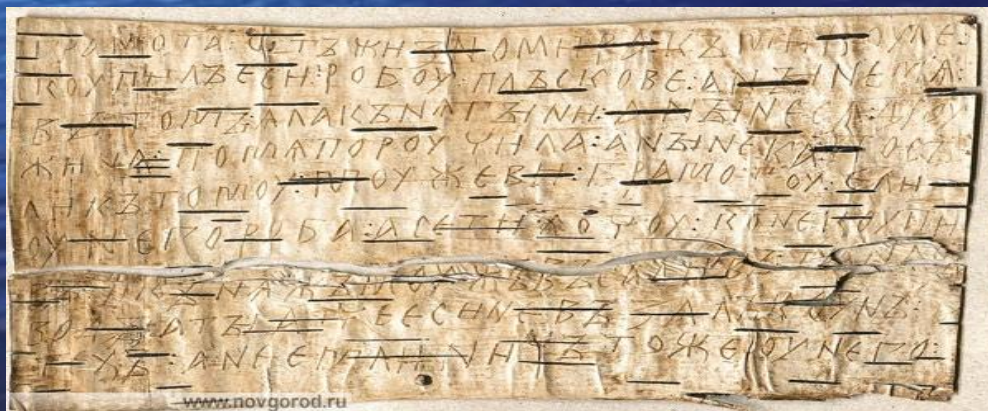 ГРАМОТА : ѠТЪ ЖИЗНОМИРА : КЪ МИКОУЛЕ :
КОУПИЛЪ ЕСИ : РОБОУ : ПЛЪСКОВЕ : А НЪІНЕ МѦ :
ВЪ ТОМЪ : ѦЛА КЪНѦГЪІНИ : А НЪІНЕ СѦ ДРОУ
ЖИНА : ПО МѦ ПОРОУЧИЛА : А НЪІНЕ КА : ПОСЪ
ЛИ КЪ ТОМОУ : МОУЖЕВИ : ГРАМОТОУ : Е ЛИ
ОУ НЕГО РОБА : А СЕ ТИ ХОЧОУ : КОНЕ КОУПИ
ВЪ : И КЪНѦЖЪ МОУЖЪ ВЪСАДИВЪ : ТА НА СЪ
ВОДЪІ : А ТЪІ АТЧЕ ЕСИ НЕ ВЪЗАЛЪ КОУНЪ :
ТЕХЪ : А НЕ ЕМЛИ : НИЧЪТО ЖЕ ОУ НЕГО :
www.novgorod.ru